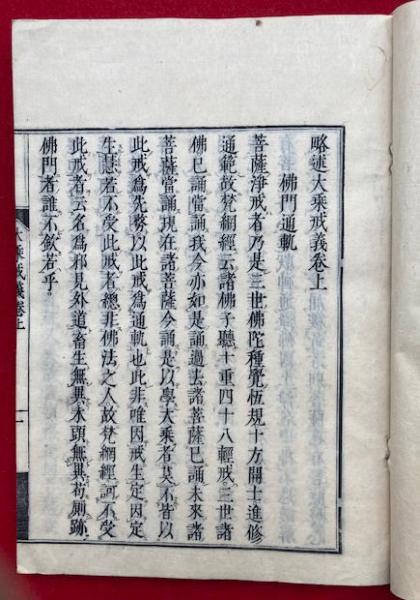 略述大乘戒義卷上
佛門通軌
菩薩淨戒者乃是三世佛陀種覺恆規十方開士進修
通範故梵網經云諸佛子聽十重四十八輕戒三世諸
佛已誦當誦我今亦如是誦過去諸菩薩已誦未來諸
菩薩當誦現在諸菩薩今誦是以學大乘者莫不皆以
此戒爲先務以此戒爲通軌也此非唯因戒生定因定
生慧若不受此戒者總非佛法之人故梵網經訶不受
此戒者云名爲邪見外道畜生無異木頭無異苟厠跡
佛門者誰不欽若乎
大乘戒義卷上
一